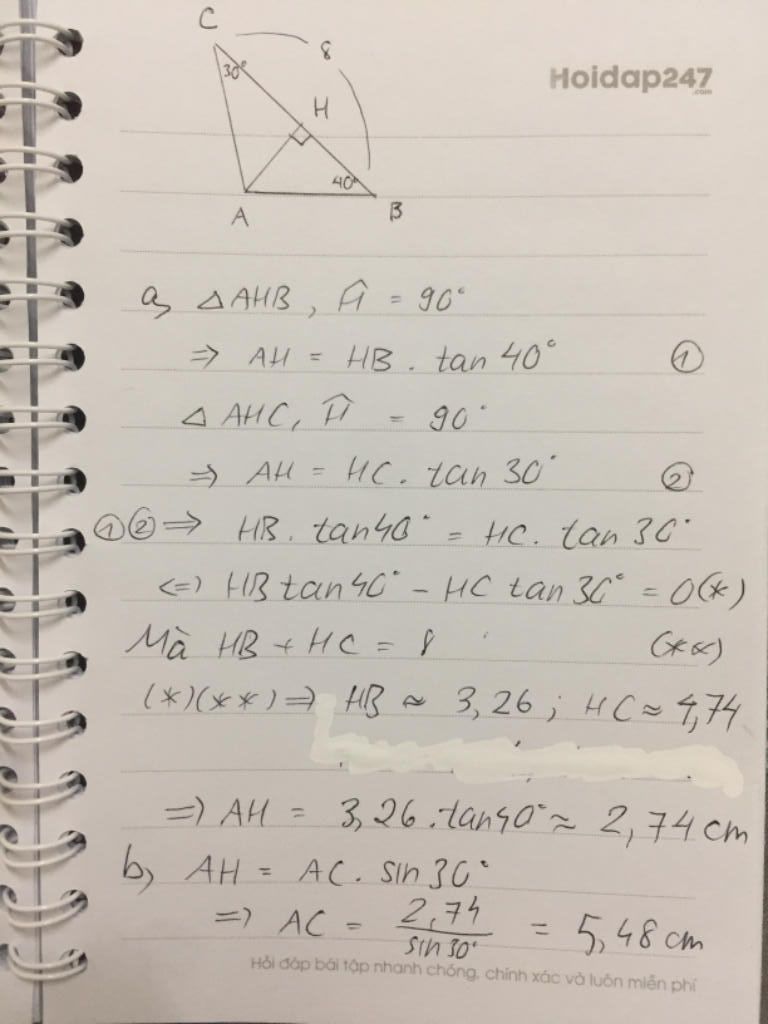 C
8
30°
Hoidap247
.com
H
40°
A
B
a, △AHB, Ĥ = 90°
=> AH = HB . tan 40° ①
△AHC, Ĥ = 90°
=> AH = HC . tan 30° ②
①② => HB . tan40° = HC . tan 30°
<=> HB tan40° - HC tan 30° = 0 (*)
Mà HB + HC = 8 (**)
(*)(**) => HB ≈ 3,26 ; HC ≈ 4,74
=> AH = 3,26 . tan40° ≈ 2,74 cm
b, AH = AC . sin 30°
=> AC = 2,74 / sin 30° = 5,48 cm
Hỏi đáp bài tập nhanh chóng, chính xác và luôn miễn phí